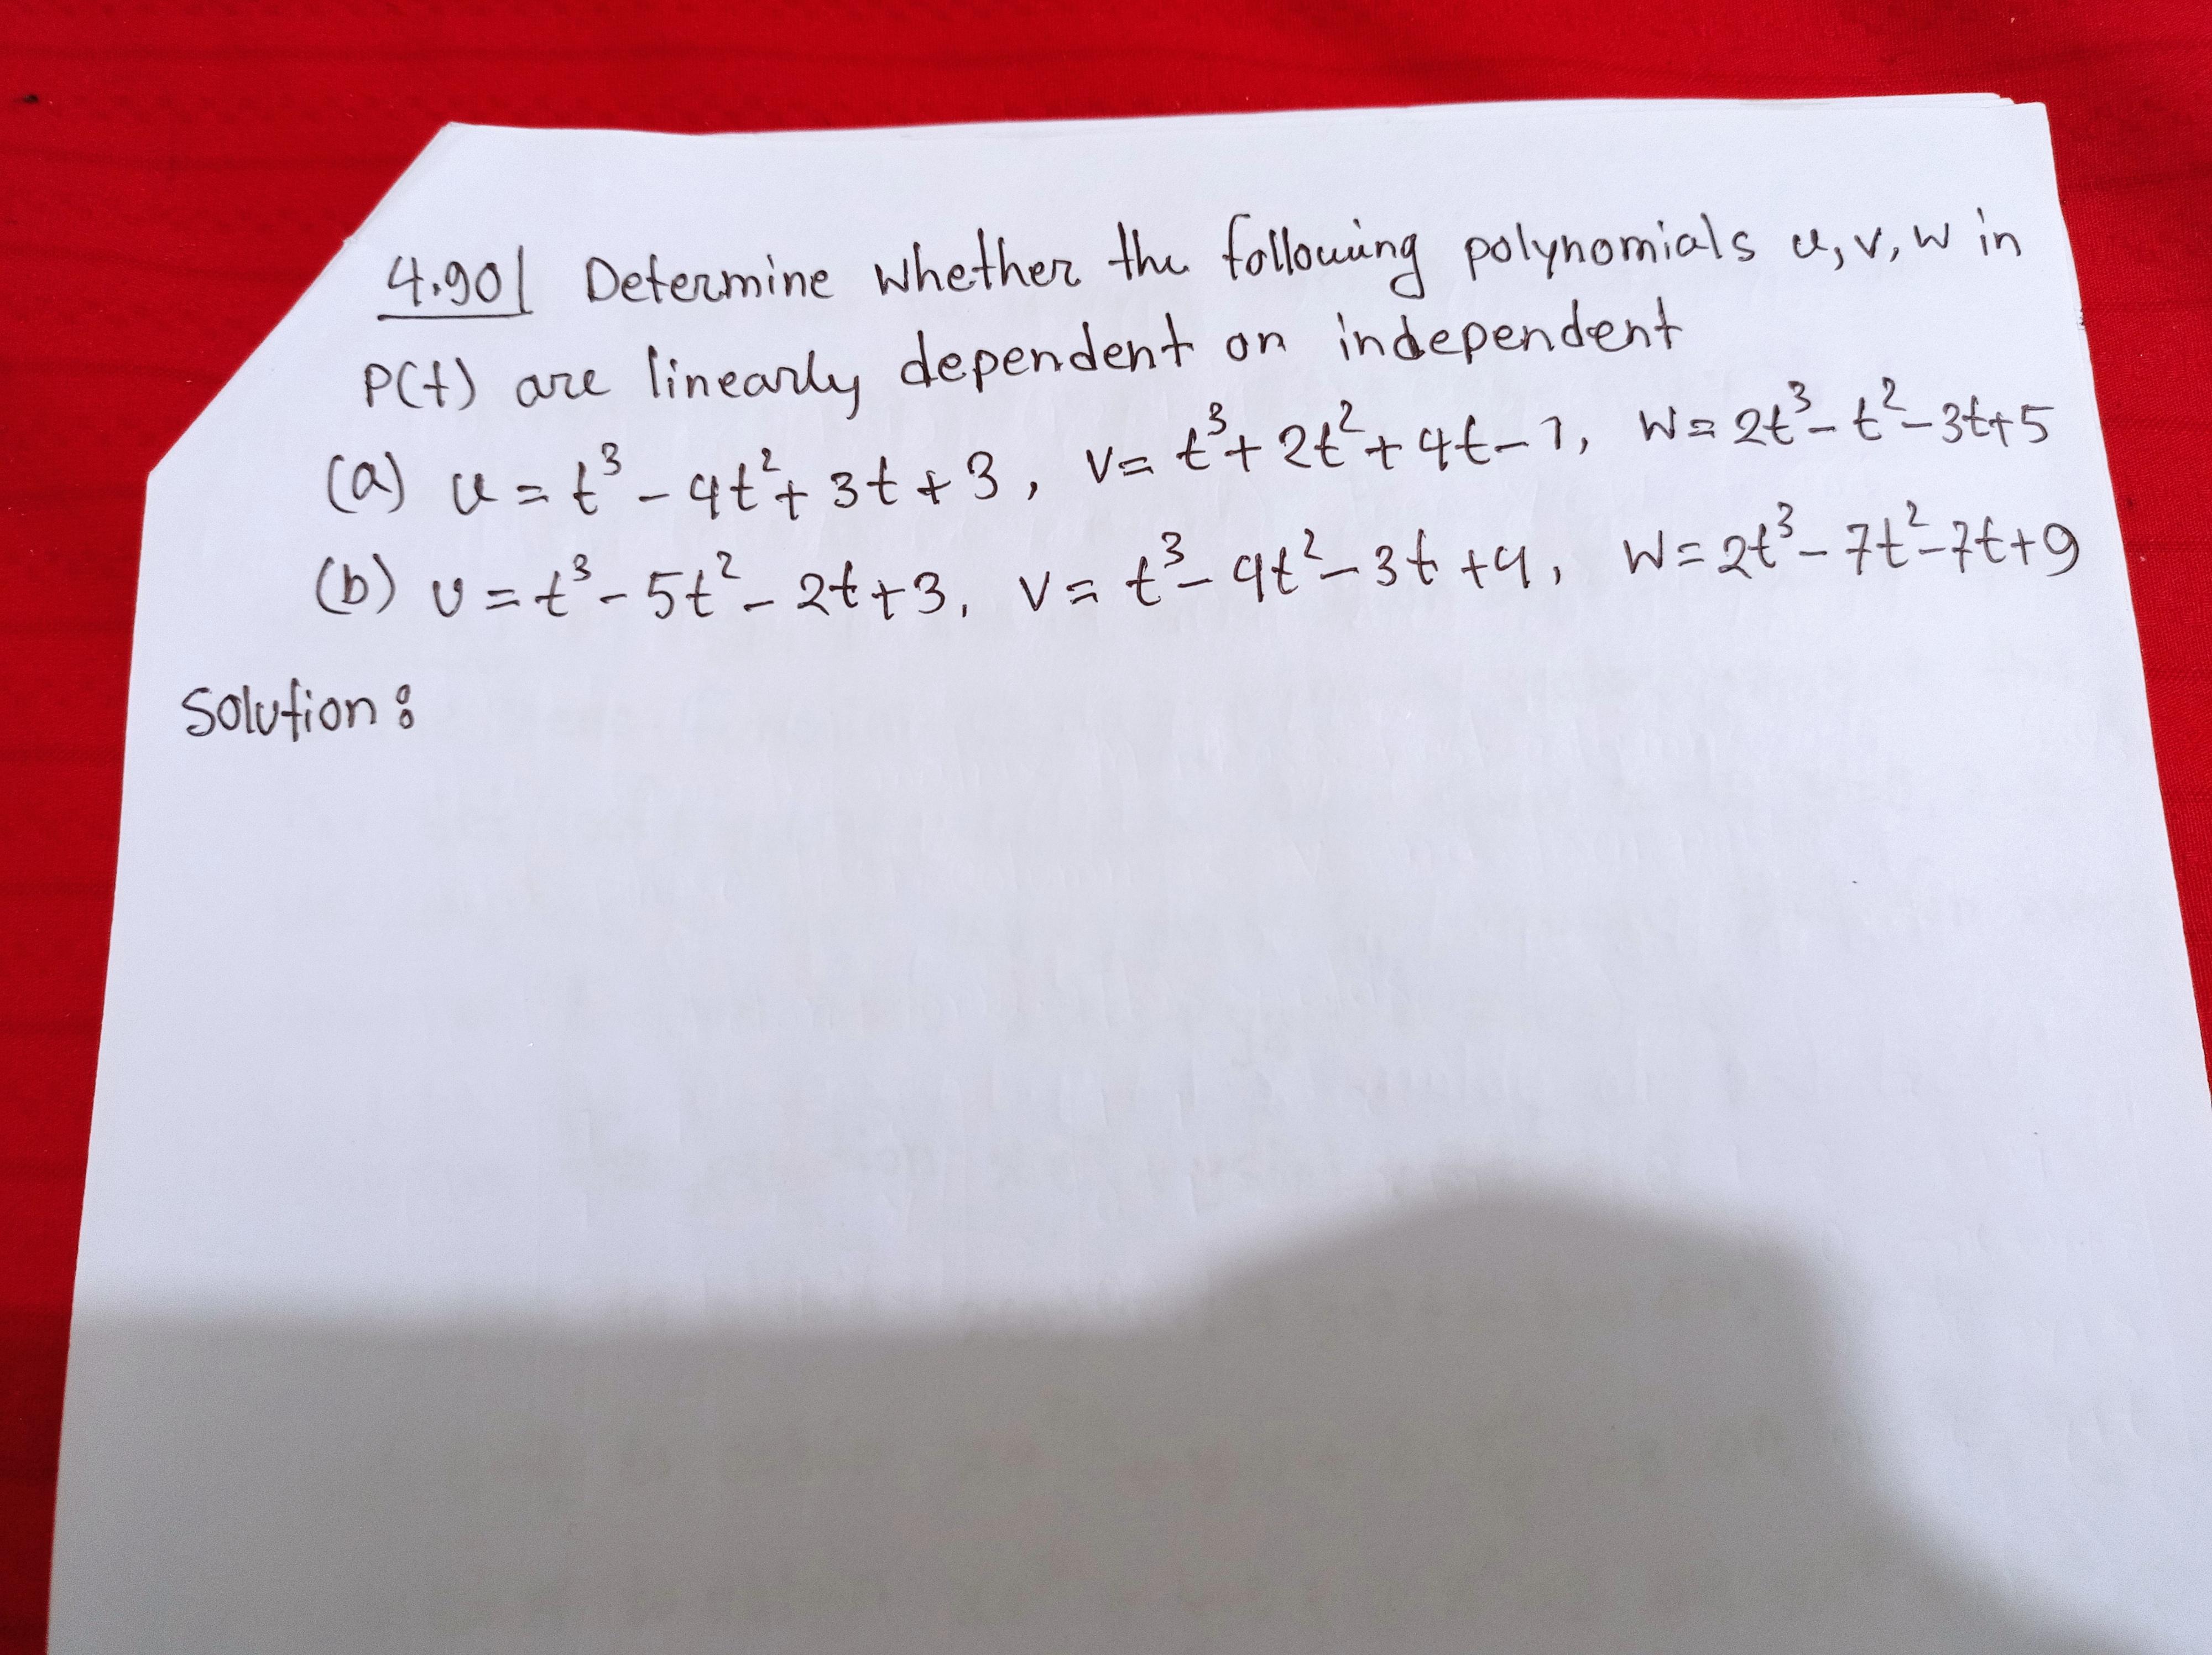 4.90| Determine whether the following polynomials u, v, w in
P(t) are linearly dependent or independent
(a) u = t³ - 4t² + 3t + 3, v = t³ + 2t² + 4t - 1, w = 2t³ - t² - 3t + 5
(b) u = t³ - 5t² - 2t + 3, v = t³ - 4t² - 3t + 4, w = 2t³ - 7t² - 7t + 9
Solution: